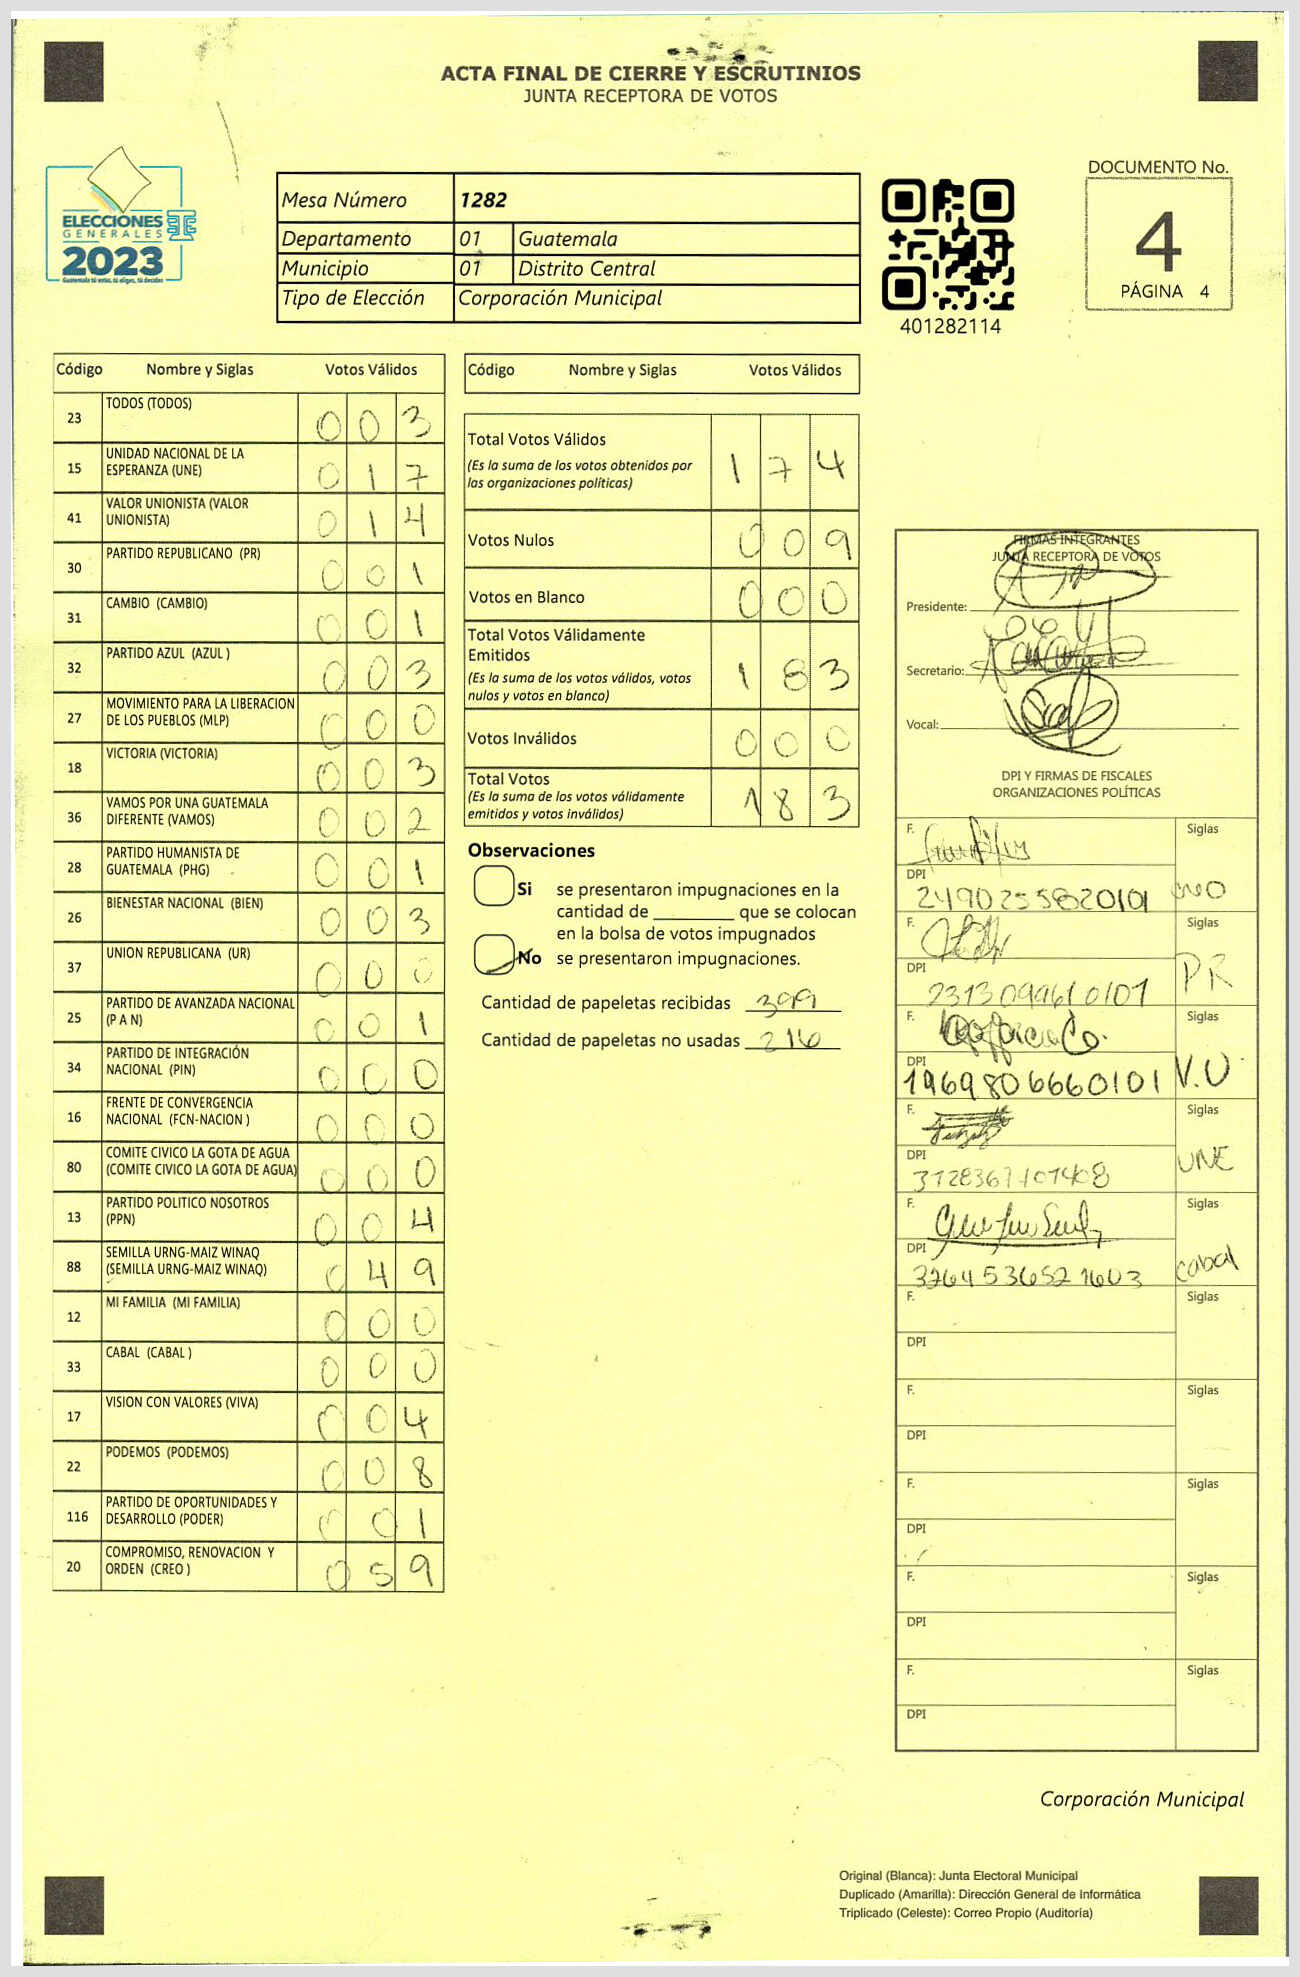 ACTA FINAL DE CIERRE Y ESCRUTINIOS
JUNTA RECEPTORA DE VOTOS
ELECCIONES
GENERALES
2023
Guatemala tú votas, tú eliges, tú decides
Mesa Número 1282
Departamento 01 Guatemala
Municipio 01 Distrito Central
Tipo de Elección Corporación Municipal
401282114
DOCUMENTO No.
4
PÁGINA 4
Código Nombre y Siglas Votos Válidos
23 TODOS (TODOS) 0 0 3
15 UNIDAD NACIONAL DE LA
ESPERANZA (UNE) 0 1 7
41 VALOR UNIONISTA (VALOR
UNIONISTA) 0 1 4
30 PARTIDO REPUBLICANO (PR) 0 0 1
31 CAMBIO (CAMBIO) 0 0 1
32 PARTIDO AZUL (AZUL ) 0 0 3
27 MOVIMIENTO PARA LA LIBERACION
DE LOS PUEBLOS (MLP) 0 0 0
18 VICTORIA (VICTORIA) 0 0 3
36 VAMOS POR UNA GUATEMALA
DIFERENTE (VAMOS) 0 0 2
28 PARTIDO HUMANISTA DE
GUATEMALA (PHG) 0 0 1
26 BIENESTAR NACIONAL (BIEN) 0 0 3
37 UNION REPUBLICANA (UR) 0 0 0
25 PARTIDO DE AVANZADA NACIONAL
(P A N) 0 0 1
34 PARTIDO DE INTEGRACIÓN
NACIONAL (PIN) 0 0 0
16 FRENTE DE CONVERGENCIA
NACIONAL (FCN-NACION ) 0 0 0
80 COMITE CIVICO LA GOTA DE AGUA
(COMITE CIVICO LA GOTA DE AGUA) 0 0 0
13 PARTIDO POLITICO NOSOTROS
(PPN) 0 0 4
88 SEMILLA URNG-MAIZ WINAQ
(SEMILLA URNG-MAIZ WINAQ) 0 4 9
12 MI FAMILIA (MI FAMILIA) 0 0 0
33 CABAL (CABAL ) 0 0 0
17 VISION CON VALORES (VIVA) 0 0 4
22 PODEMOS (PODEMOS) 0 0 8
116 PARTIDO DE OPORTUNIDADES Y
DESARROLLO (PODER) 0 0 1
20 COMPROMISO, RENOVACION Y
ORDEN (CREO ) 0 5 9
Código Nombre y Siglas Votos Válidos
Total Votos Válidos
(Es la suma de los votos obtenidos por
las organizaciones políticas) 1 7 4
Votos Nulos 0 0 9
Votos en Blanco 0 0 0
Total Votos Válidamente
Emitidos
(Es la suma de los votos válidos, votos
nulos y votos en blanco) 1 8 3
Votos Inválidos 0 0 0
Total Votos
(Es la suma de los votos válidamente
emitidos y votos inválidos) 1 8 3
Observaciones
Si se presentaron impugnaciones en la
cantidad de ________ que se colocan
en la bolsa de votos impugnados
No se presentaron impugnaciones.
Cantidad de papeletas recibidas 399
Cantidad de papeletas no usadas 216
FIRMAS INTEGRANTES
JUNTA RECEPTORA DE VOTOS
Presidente:
Secretario:
Vocal:
DPI Y FIRMAS DE FISCALES
ORGANIZACIONES POLÍTICAS
F. Siglas
DPI
2490255820101
F. Siglas
DPI PR
2313099610101
F. Siglas
DPI V.U
1969806660101
F. Siglas
DPI UNE
F. Siglas
DPI cabal
3264536521603
F. Siglas
DPI
F. Siglas
DPI
F. Siglas
DPI
F. Siglas
DPI
F. Siglas
DPI
Corporación Municipal
Original (Blanca): Junta Electoral Municipal
Duplicado (Amarilla): Dirección General de Informática
Triplicado (Celeste): Correo Propio (Auditoría)